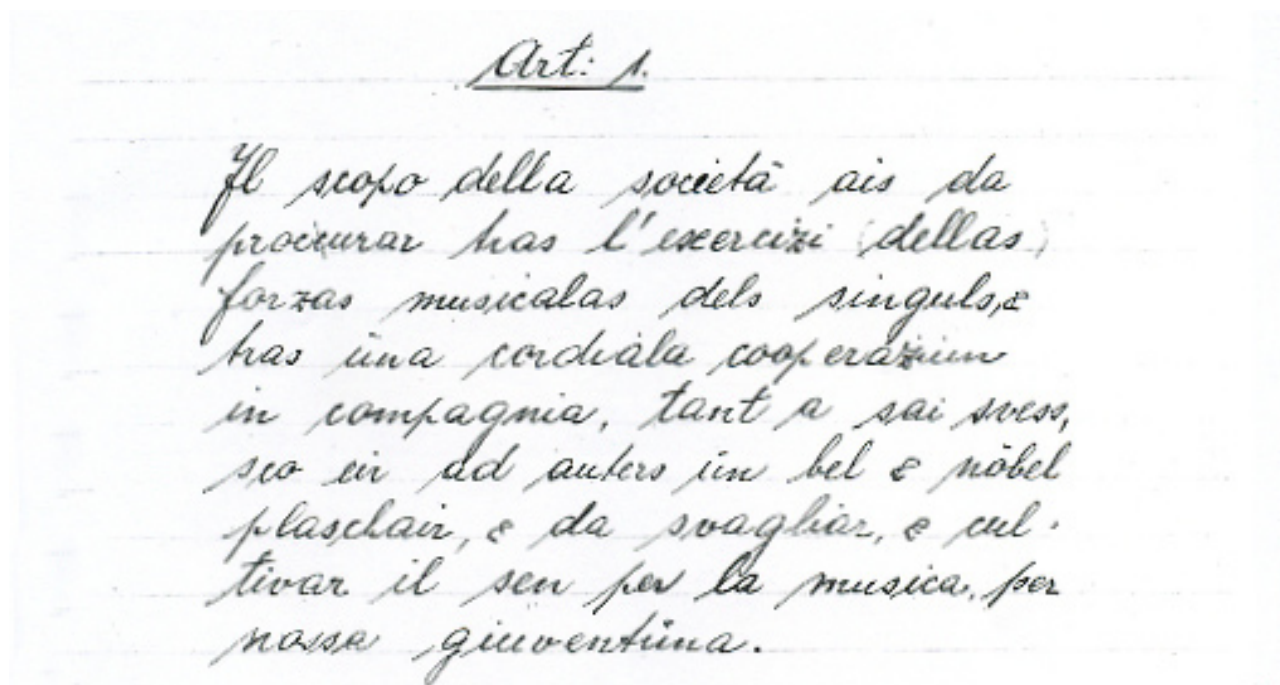 Art: 1.
Il scopo della società ais da
procurar tras l'exercizi dellas
forzas musicalas dels singuls, e
tras üna cordiala cooperaziun
in compagnia, tant a sai svess,
sco eir ad auters ün bel e nöbel
plaschair, e da svagliar, e cul-
tivar il sen per la musica, per
nossa giuventüna.